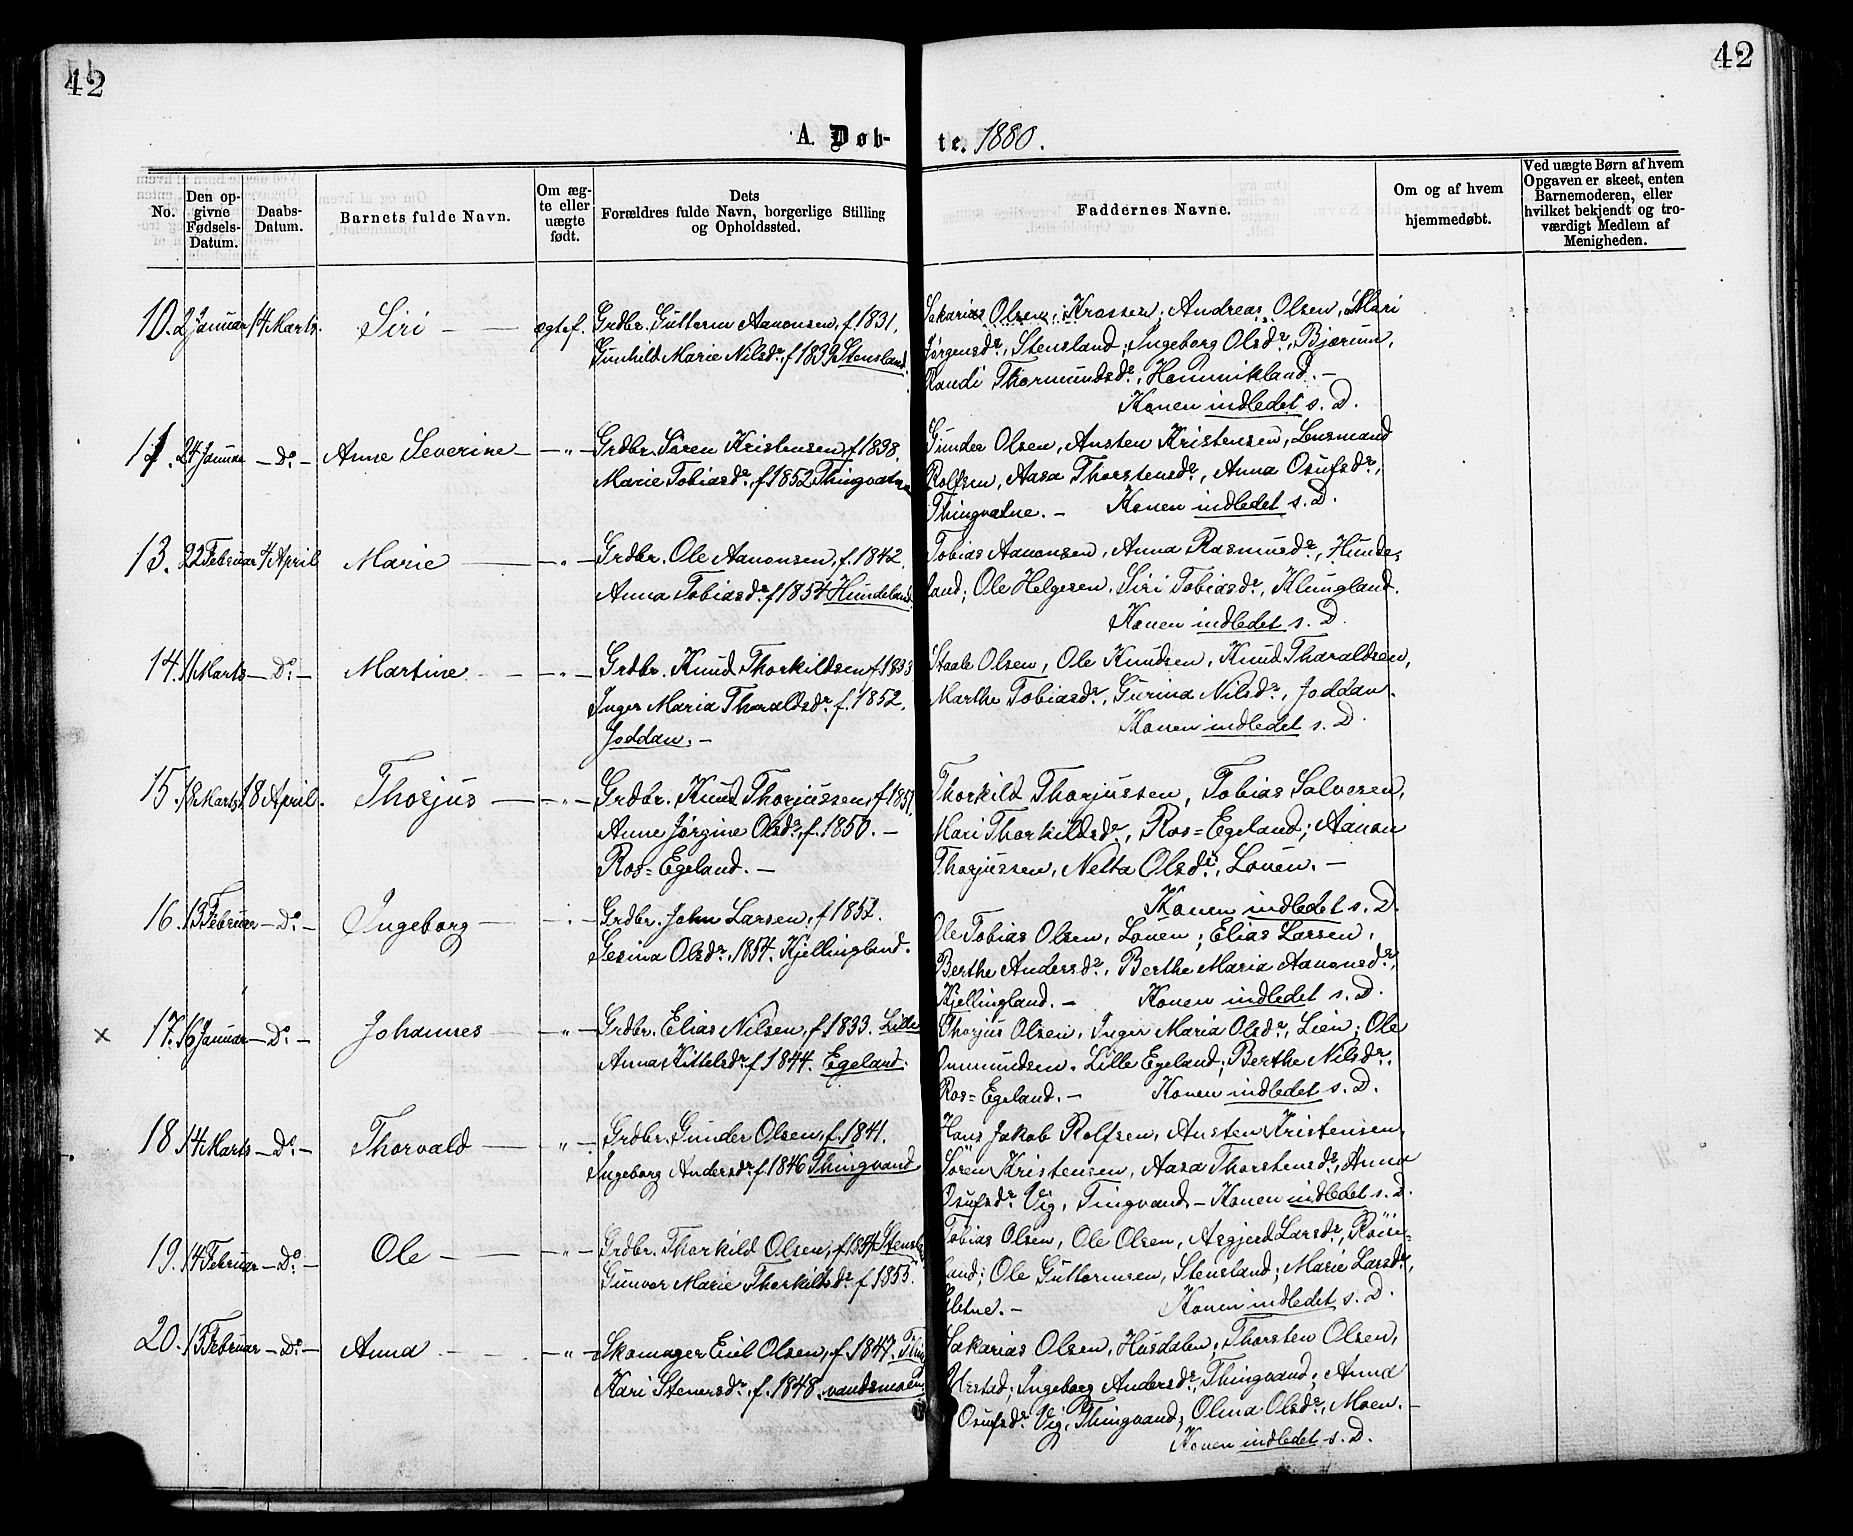 42
42
A. Døb-
te. 1880.
No.
Den op-
givne
Fødsels-
Datum.
Daabs-
Datum.
Barnets fulde Navn.
Om æg-
te eller
uægte
født.
Dets
Forældres fulde Navn, borgerlige Stilling
og Opholdssted.
Faddernes Navne.
Om og af hvem
hjemmedøbt.
Ved uægte Børn af hvem
Opgaven er skeet, enten
Barnemoderen, eller
hvilket bekjendt og tro-
værdigt Medlem af
Menigheden.
10. 2 Januar 14 Marts. Siri — ægtef. Grdbr. Guttorm Aanonsen, f. 1831.
Gunhild Marie Nilsdr. f 1839 Stensland.
Sakarias Olsen, Krossen; Andreas Olsen, Mari
Jørgensdr., Stensland; Ingeborg Olsdr., Bjærum,
Randi Thormundsdr., Homnikland. —
Konen indledet s. D.
11. 24 Januar — Do. — Anne Severine — — „ — Grdbr. Sören Kristensen, f 1838.
Marie Tobiasdr., f. 1852 Thingvatne
Gunder Olsen, Austen Kristensen, Lensmand
Rolfsen, Aasa Thorstensdr., Anna Osufsdr.,
Thingvatne. — Konen indledet s. D.
13. 22 Februar 4 April Marie — — „ — Grdbr. Ole Aanonsen, f. 1842.
Anna Tobiasdr. f 1854 Hundeland.
Tobias Aanonsen, Anna Rasmusdr., Hunde-
land; Ole Helgesen, Siri Tobiasdr., Klungland.
Konen indledet s. D.
14. 11 Marts — Do. — Martine — — „ — Grdbr. Knud Thorkildsen f 1833
Inger Maria Tharaldsdr. f. 1852.
Joddan. —
Staale Olsen, Ole Knudsen, Knud Tharaldsen,
Marthe Tobiasdr., Gurina Nilsdr., Joddan.
Konen indledet s. D.
15. 18 Marts 18 April. Thorjus — — „ — Grdbr. Knud Thorjussen, f 1851.
Anne Jørgine Olsdr., f. 1850. —
Ros=Egeland. —
Thorkild Thorjussen, Tobias Salvesen,
Mari Thorkildsdr., Ros=Egeland; Aanon
Thorjussen, Netta Olsdr., Louen. —
Konen indledet s. D.
16. 13 Februar — Do. — Ingeborg — — „ — Grdbr. John Larsen, f 1852.
Gesina Olsdr., 1854. Kjellingland.
Ole Tobias Olsen, Louen; Elias Larsen,
Berthe Andersdr., Berthe Maria Aanonsdr.,
Kjellingland. — Konen indledet s. D.
× 17. 16 Januar — Do. — Johannes — „ — Grdbr. Elias Nilsen, f 1833. Lille
Anna Kittelsdr. f 1844. Egeland.
Thorjus Olsen, Inger Maria Olsdr., Lien; Ole
Ommundsen, Lille Egeland; Berthe Nilsdr.,
Ros=Egeland. — Konen indledet s. D.
18. 14 Marts — Do. — Thorvald — „ — Grdbr. Gunder Olsen, f. 1841.
Ingeborg Andersdr. f 1846 Thingvand
Hans Jakob Rolfsen, Austen Kristensen,
Sören Kristensen, Aasa Thorstensdr., Anna
Osufsdr. Vig, Tingvand — Konen indledet s. D.
19. 14 Februar — Do. — Ole — — „ — Grdbr. Thorkild Olsen, f 1854 Stensland
Gunvor Marie Thorkildsdr. f 1855.
Tobias Olsen, Ole Olsen, Asgjerd Larsdr., Röis-
land; Ole Guttormsen, Stensland; Marie Larsdr.,
Konen indledet s. D.
20. 15 Februar — Do. — Anna — — „ — Skomager Emil Olsen, f. 1847. Thing
Kari Stenersdr. f. 1848. vandsmoen
Sakarias Olsen, Husdalen; Thorsten Olsen,
Ingeborg Andersdr., Thingvand; Anna
Osufsdr. Vig, Thingvand; Olina Olsdr., Moen. —
Konen indledet s. D.